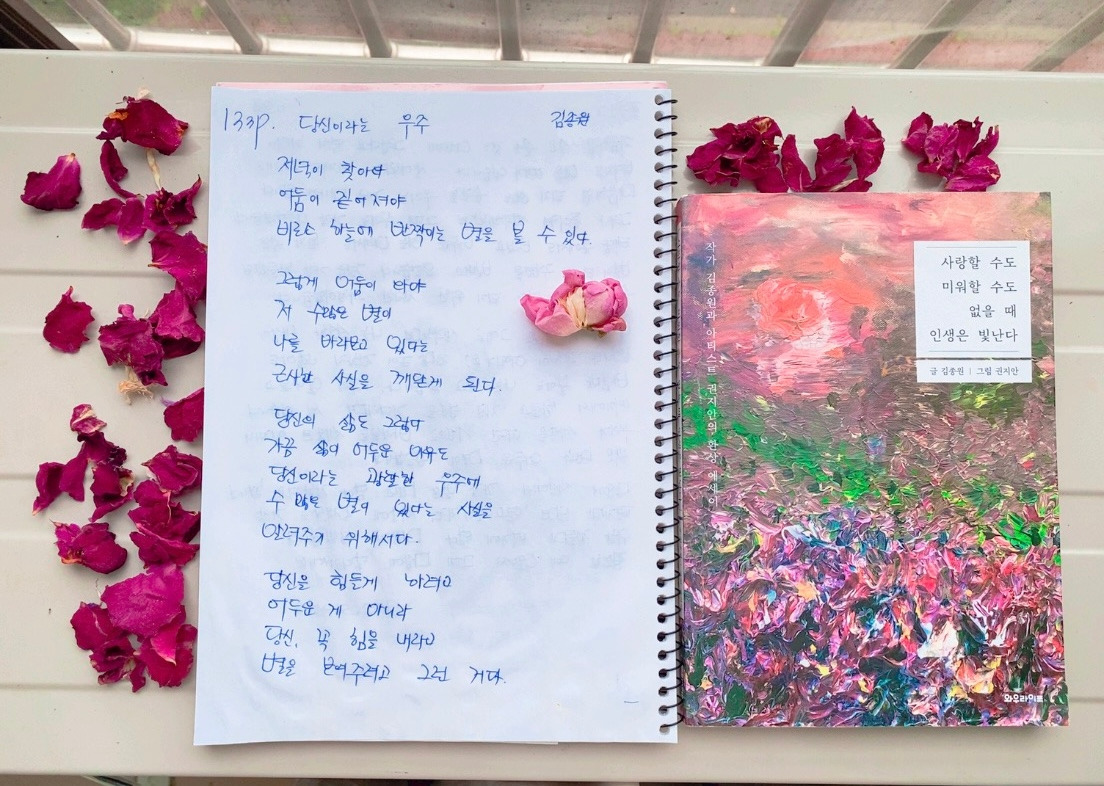 133p. 당신이라는 우주 김종원
저녁이 찾아와
어둠이 짙어져야
비로소 하늘에 반짝이는 별을 볼 수 있다.
그렇게 어둠이 와야
저 수많은 별이
나를 바라보고 있다는
근사한 사실을 깨닫게 된다.
당신의 삶도 그렇다
가끔 삶이 어두운 이유도
당신이라는 광활한 우주에
수 많은 별이 있다는 사실을
알려주기 위해서다.
당신을 힘들게 하려고
어두운 게 아니라
당신, 꼭 힘을 내라고
별을 보여주려고 그런 거다.
작가 김종원과 아티스트 권지안의 환상 에세이
사랑할 수도
미워할 수도
없을 때
인생은 빛난다
글 김종원 | 그림 권지안
와우라이프